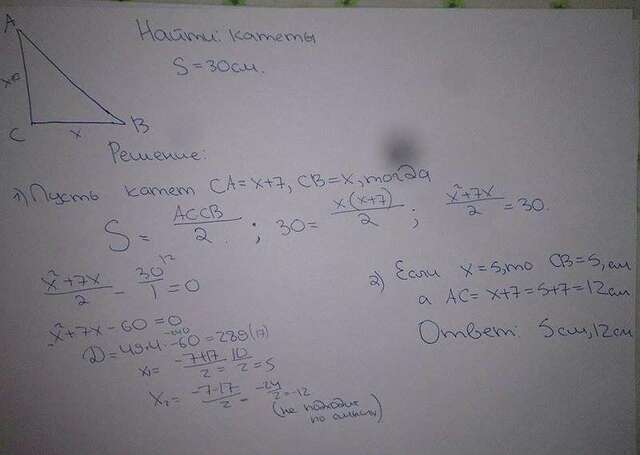 A
Найти: катеты
S = 30см.
C x B
Решение:
1) Пусть катет CA = x+7, CB = x, тогда
S = ACCB/2 ; 30 = x(x+7)/2 ; x²+7x/2 = 30.
x²+7x/2 - 30/1 = 0
x²+7x-60=0
x₁ = -7+17/2 = 10/2 = 5
x₂ = -7-17/2 = -24/2 = -12
(не подходит по смыслу)
2) Если x=5, то CB=5, см
а AC = x+7=5+7=12см
Ответ: 5см, 12см